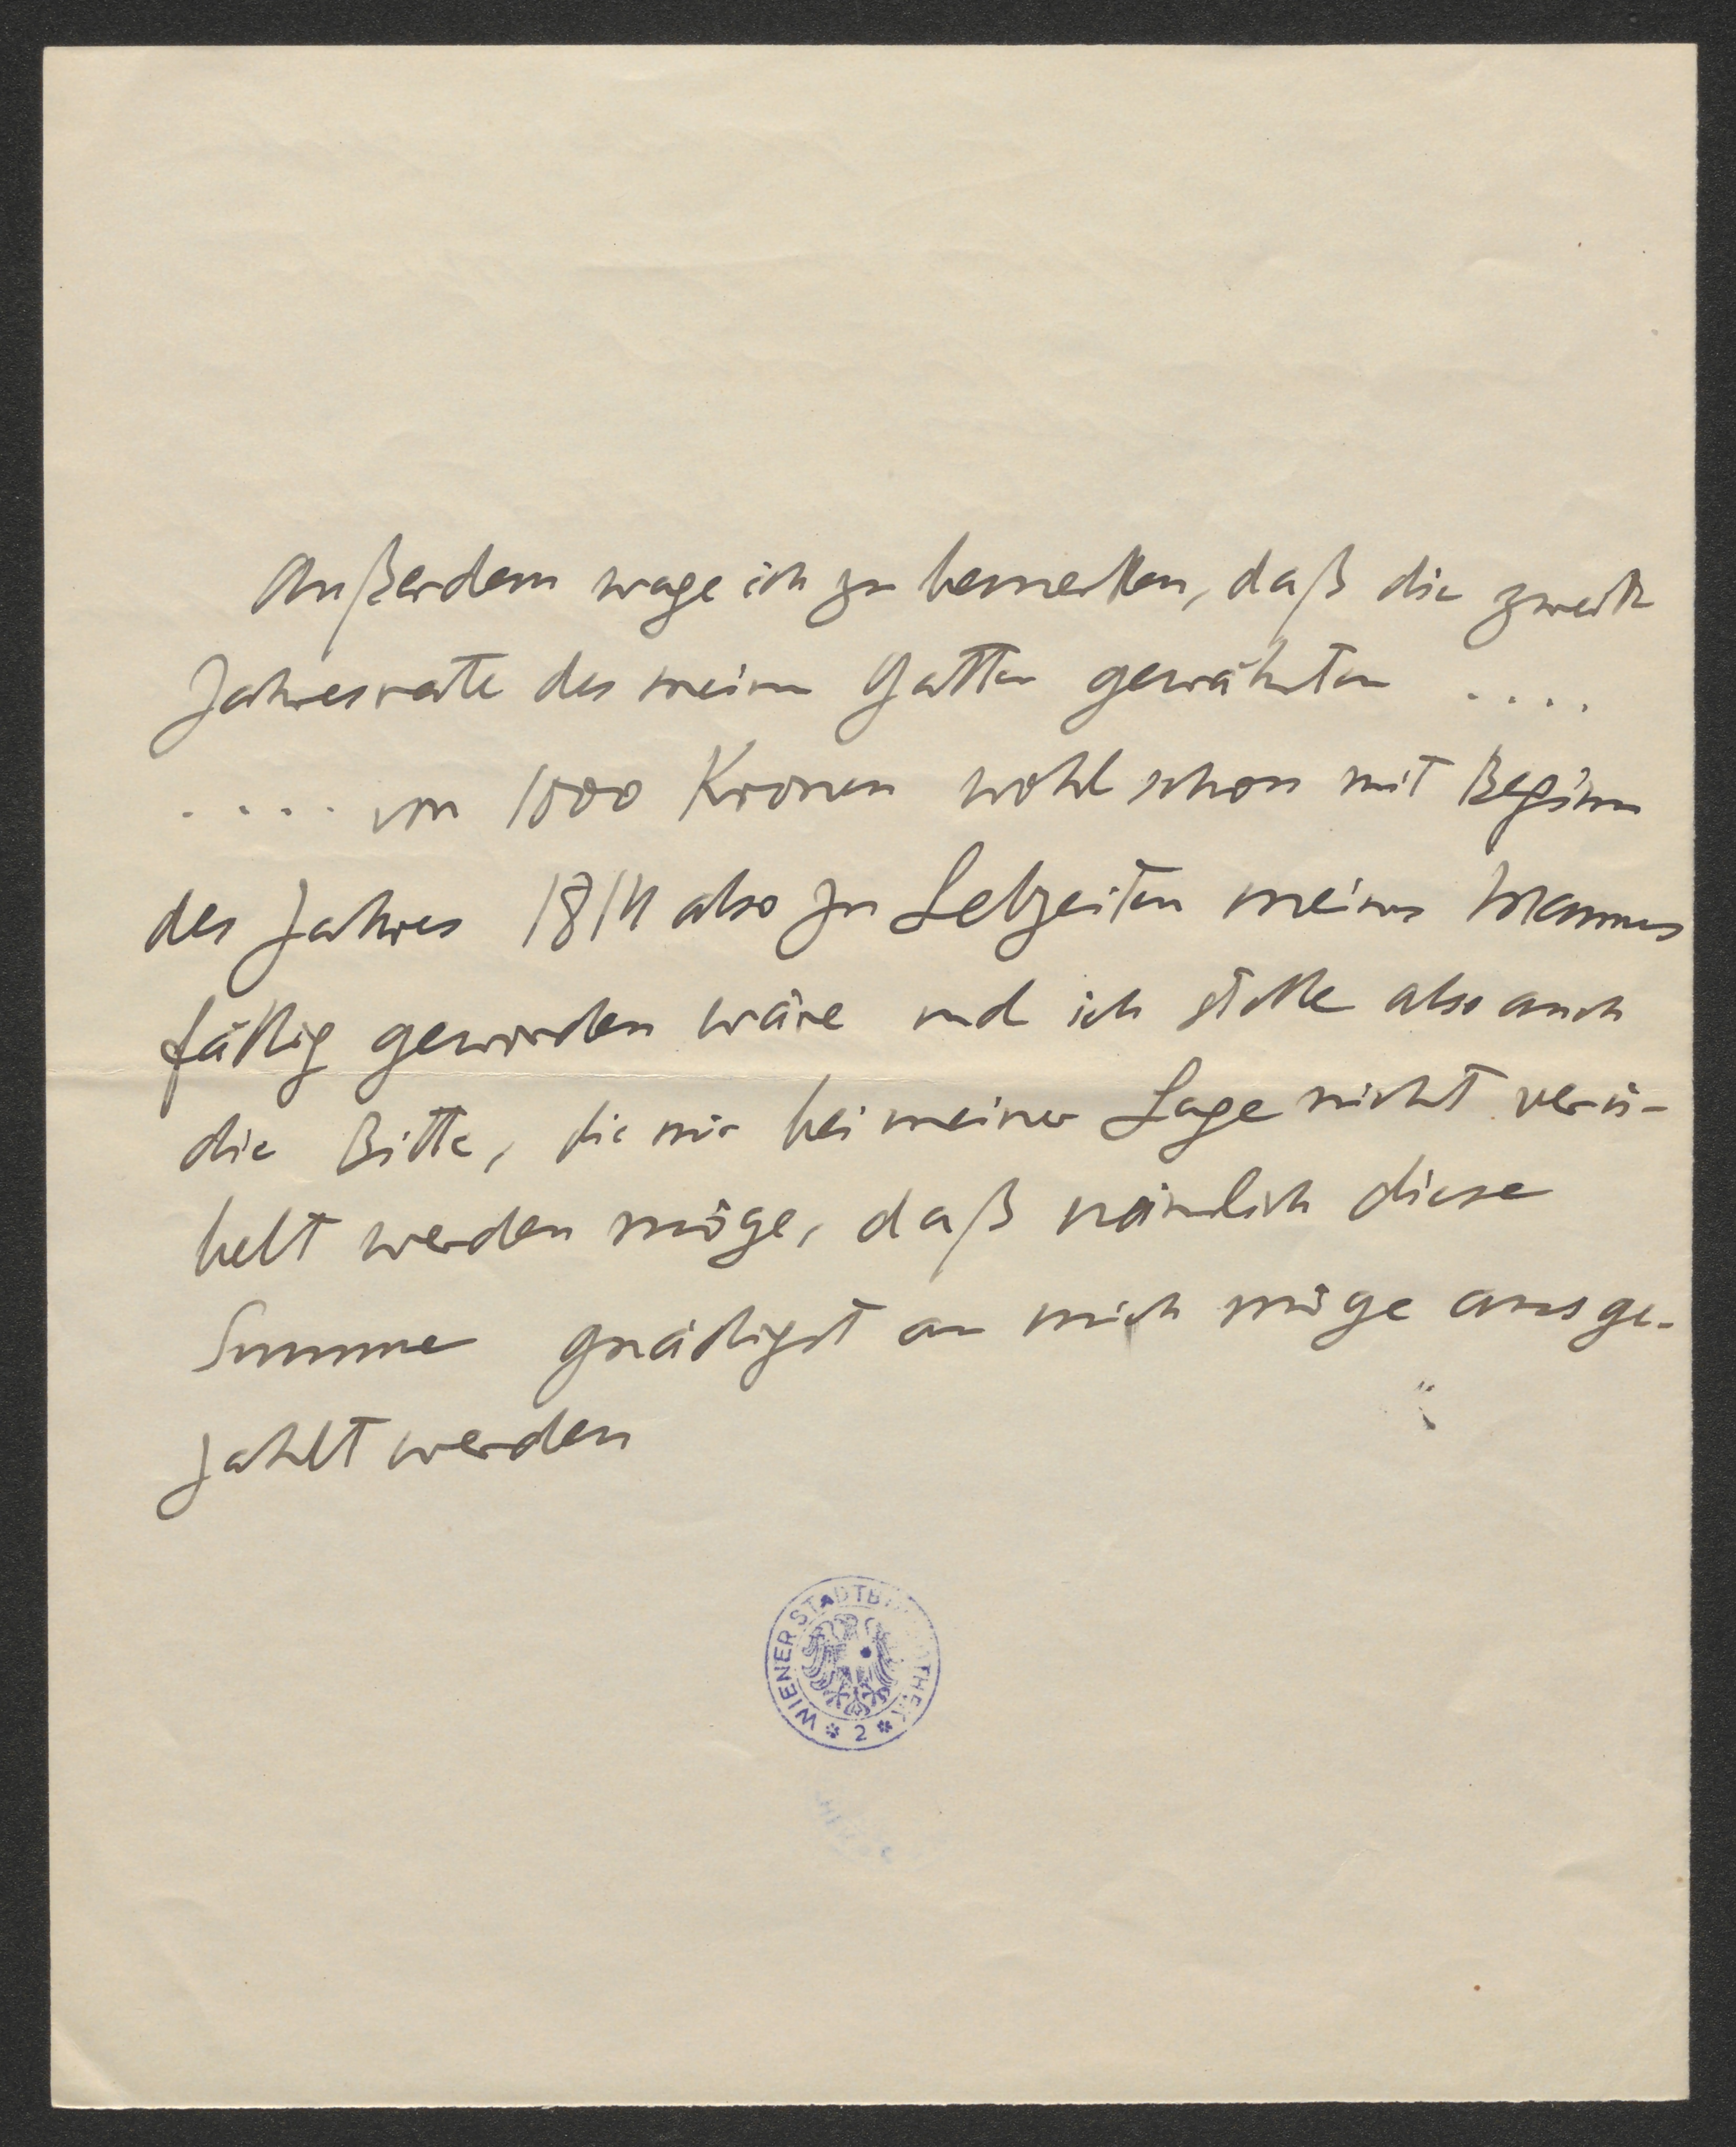 Außerdem wage ich zu bemerken, daß die zweite
Jahresrate des meinem Gatten gewährten ....
.... von 1000 Kronen wohl schon mit Beginn
des Jahres also zu Lebzeiten meines Mannes
fällig geworden wäre und ich stelle also auch
die Bitte, die mir bei meiner Lage nicht verü-
belt werden möge, daß nämlich diese
Summe gnädigst an mich möge ausge-
zahlt werden
WIENER STADTBIBLIOTHEK
* 2 *